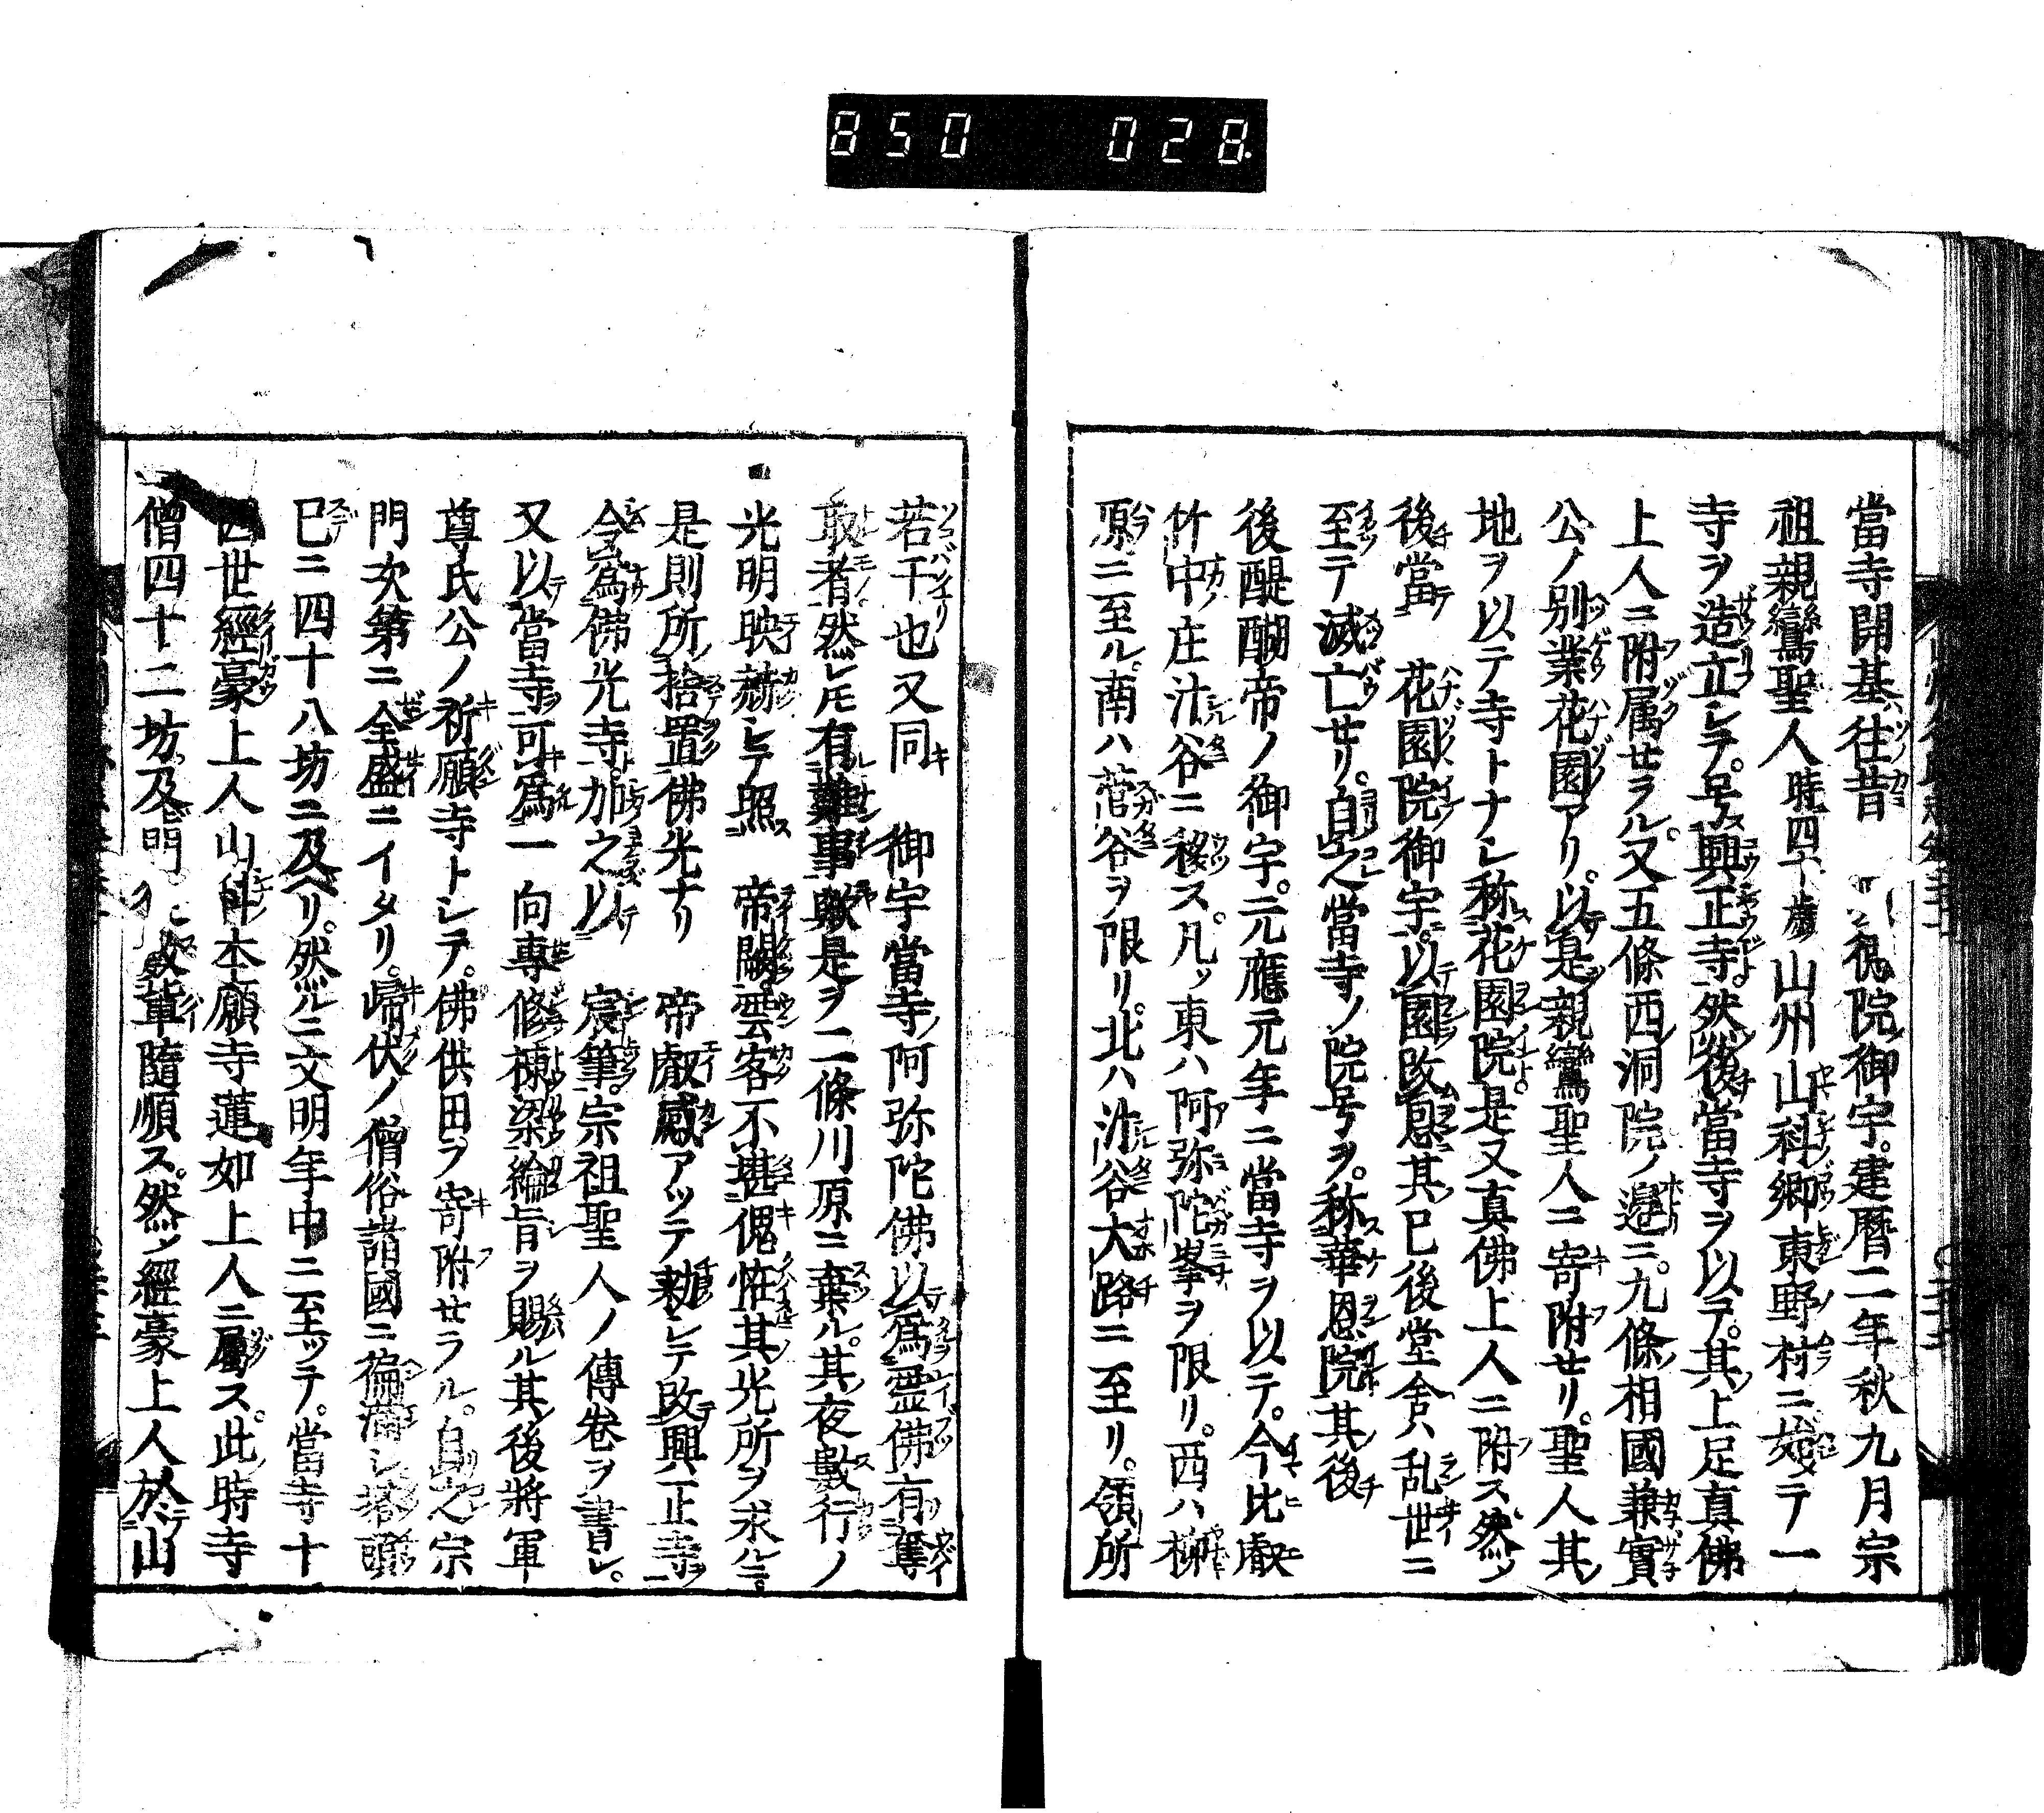 850 028
當寺開基往昔 院御宇。建曆二年秋九月宗
祖親鸞聖人時四十歲山州山科鄉東野村ニ始テ一
寺ヲ造立レテ。号ス興正寺。然後當寺ヲ以テ。其上足真佛
上人ニ附属せラル。又五條西洞院ノ邉ニ。九條相國兼實
公ノ別業花園アリ。以是親鸞聖人ニ寄附せリ。聖人其
地ヲ以テ寺トナレ称花園院。是又真佛上人ニ附ス然ノ
後當 花園院御宇。以園改恩其已後堂舍ハ乱世ニ
至テ滅亡せリ。自之當寺ノ院号ヲ。称華恩院其後
後醍醐帝ノ御宇。元應元年ニ當寺ヲ以テ。今比叡
竹中ノ庄汁谷ニ移ス。凡ッ東ハ阿弥陀峯ヲ限リ。西ハ柳
原ニ至ル。南ハ菅谷ヲ限リ。北ハ汁谷大路ニ至リ。領所
若干也又同 御宇當寺ノ阿弥陀佛以爲霊佛有奪
取者然レ𪜈有難事歟是ヲ二條川原ニ棄ル。其夜數行ノ
光明映赫レテ照 帝闕。雲客不堪傀恠其光所ヲ求ルニ。
是則所捨置佛光ナリ 帝叡感アッテ勅レテ改興正寺
令爲佛光寺。加之以 宸筆。宗祖聖人ノ傳卷ヲ書レ。
又以當寺可爲一向專修棟梁綸旨ヲ賜ル其後將軍
尊氏公ノ祈願寺トレテ。佛供田ヲ寄附せラル。自之宗
門次第ニ全盛ニイタリ。歸伏ノ僧俗諸國ニ徧滿レ塔頭
已ニ四十八坊ニ及ヘリ。然ルニ文明年中ニ至ッテ。當寺十
四世經豪上人山科本願寺蓮如上人ニ属ス。此時寺
僧四十二坊及門 數輩隨順ス。然ノ經豪上人於山